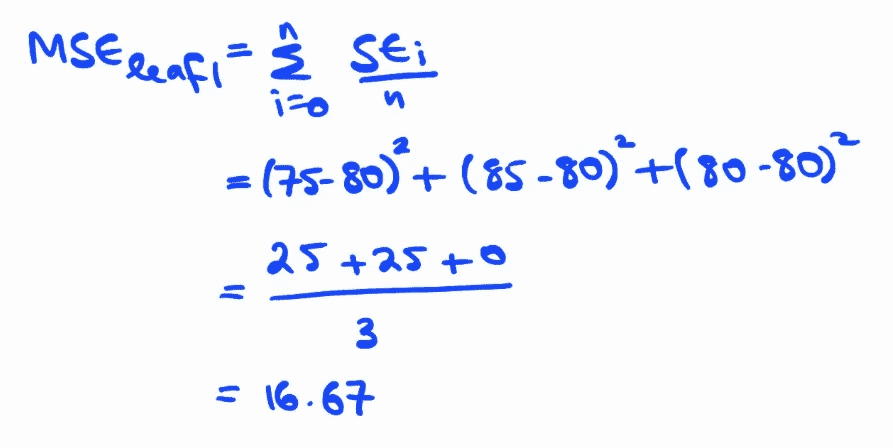 MSE_leaf1 = n Σ i=0 SEi/n
= (75-80)² + (85-80)² + (80-80)²
= 25 + 25 + 0 / 3
= 16.67